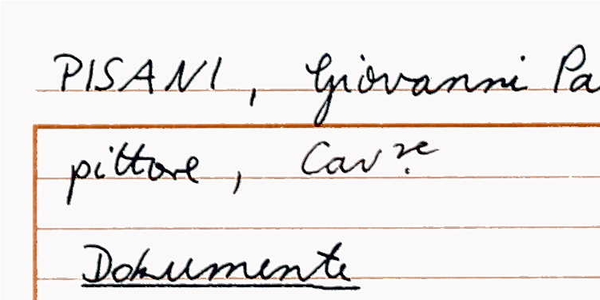 PISANI, Giovanni Pa
pittore, Cav.re
Dokumente